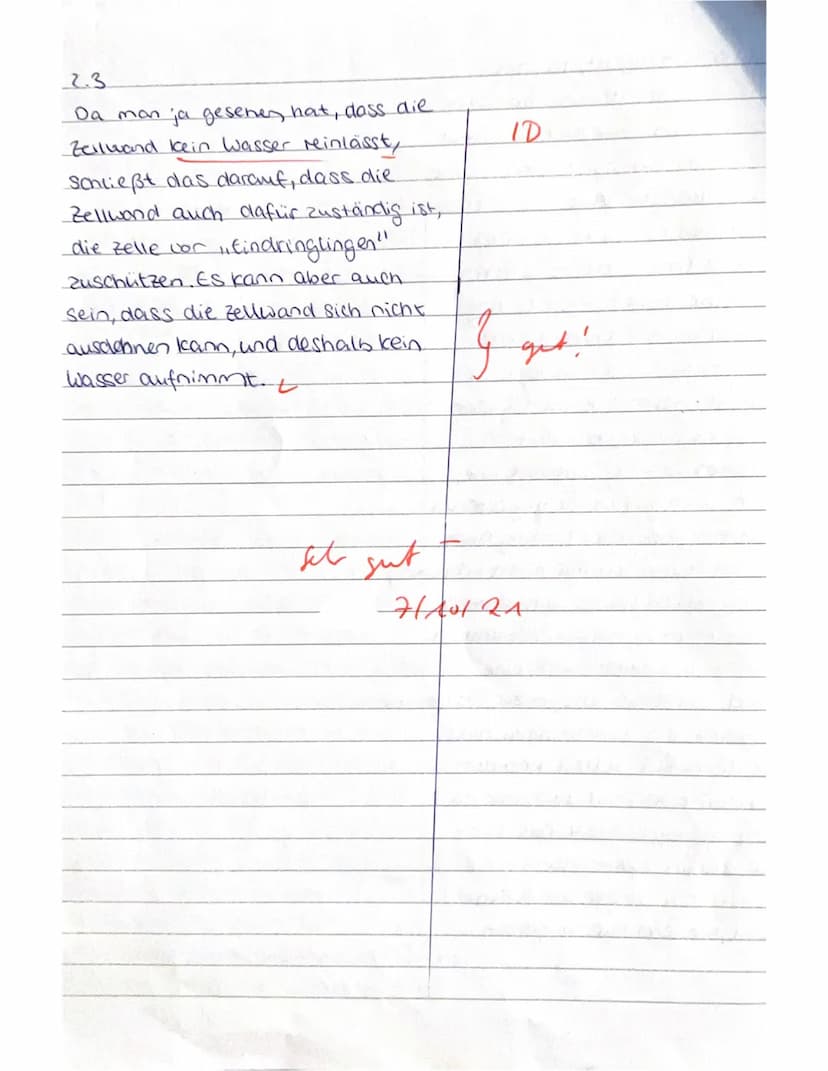 2.3
Da man ja gesehen hat, dass die
Zellwand kein Wasser reinlässt,
1D
schließt das darauf, dass die
Zellwand auch dafür zuständig ist,
die Zelle vor „Eindringlingen"
zuschützen. Es kann aber auch
sein, dass die Zellwand sich nicht
ausdehnen kann, und deshalb kein
gut!
Wasser aufnimmt.
sehr gut –
7/10/21